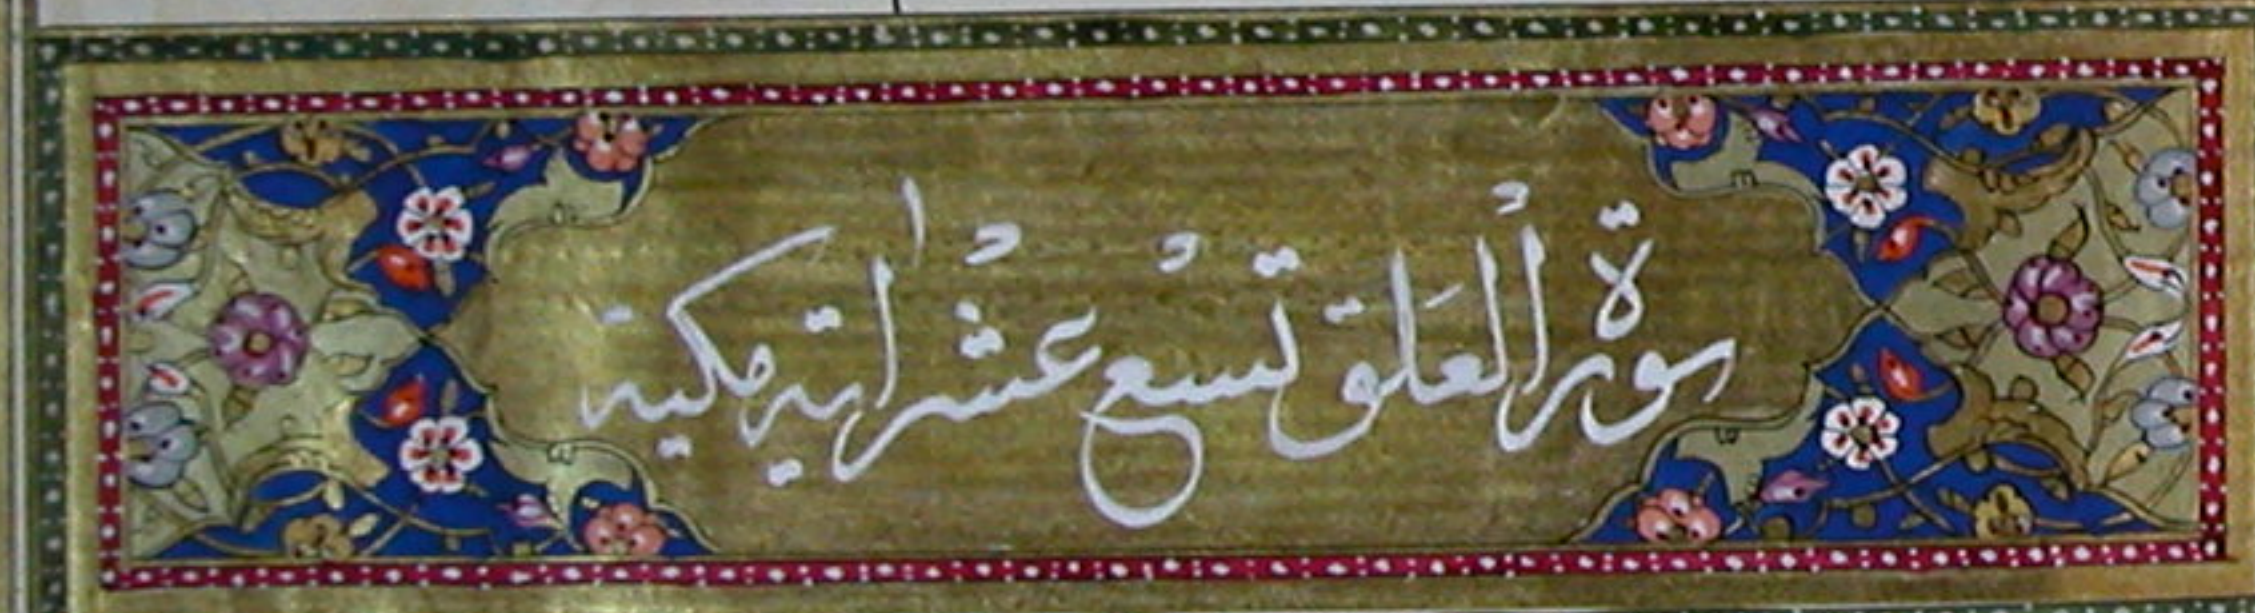 سورة العَلق تسعُ عشرُ اٰية مكية